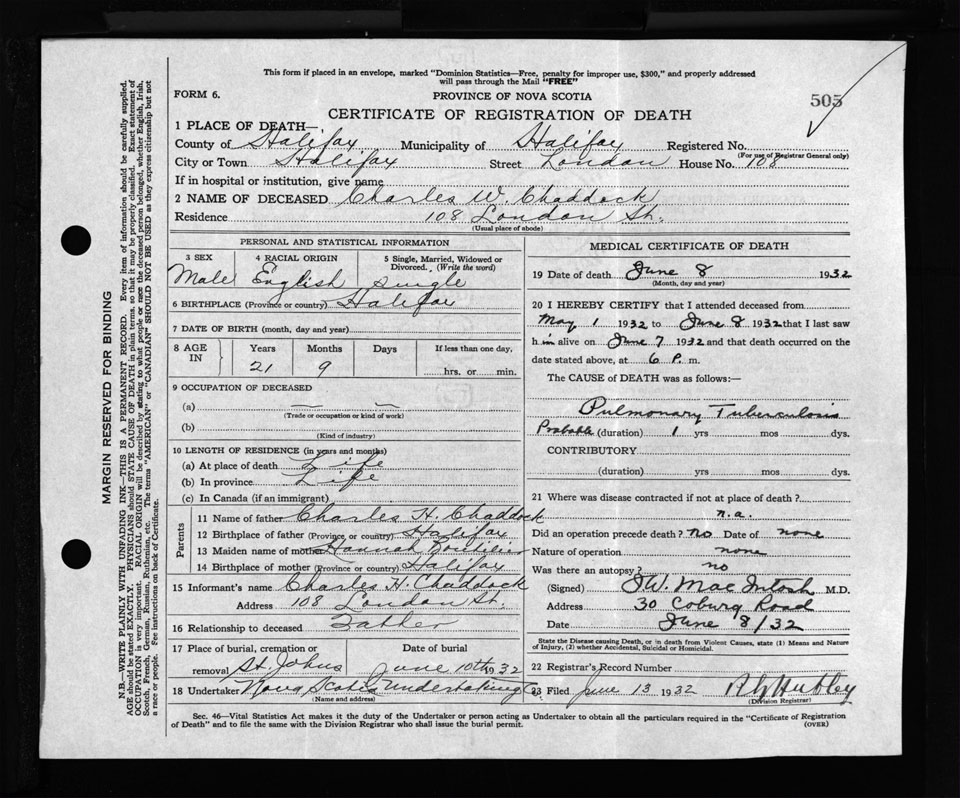 This form if placed in an envelope, marked "Dominion Statistics—Free, penalty for improper use, $300," and properly addressed
will pass through the Mail "FREE"
FORM 6.
PROVINCE OF NOVA SCOTIA
505
CERTIFICATE OF REGISTRATION OF DEATH
1 PLACE OF DEATH—
County of Halifax Municipality of Halifax Registered No.
(For use of Registrar General only)
City or Town Halifax Street London House No. 108
If in hospital or institution, give name
2 NAME OF DECEASED Charles W. Chaddock
Residence 108 London St.
(Usual place of abode)
PERSONAL AND STATISTICAL INFORMATION
3 SEX 4 RACIAL ORIGIN 5 Single, Married, Widowed or
Divorced. (Write the word)
Male English single
6 BIRTHPLACE (Province or country) Halifax
7 DATE OF BIRTH (month, day and year)
8 AGE IN Years Months Days If less than one day,
21 9 hrs. or min.
9 OCCUPATION OF DECEASED
(a) — —
(Trade or occupation or kind of work)
(b)
(Kind of industry)
10 LENGTH OF RESIDENCE (in years and months)
(a) At place of death Life
(b) In province Life
(c) In Canada (if an immigrant)
Parents
11 Name of father Charles H. Chaddock
12 Birthplace of father (Province or country) Halifax
13 Maiden name of mother Hannah Boutilier
14 Birthplace of mother (Province or country) Halifax
15 Informant's name Charles H. Chaddock
Address 108 London St.
16 Relationship to deceased Father
17 Place of burial, cremation or removal Date of burial
St. Johns June 10th 1932
18 Undertaker Nova Scotia Undertaking Co.
(Name and address)
MEDICAL CERTIFICATE OF DEATH
19 Date of death June 8 1932
(Month, day and year)
20 I HEREBY CERTIFY that I attended deceased from
May 1 1932 to June 8 1932 that I last saw
him alive on June 7 1932 and that death occurred on the
date stated above, at 6 P. m.
The CAUSE of DEATH was as follows:—
Pulmonary Tuberculosis
Probable (duration) 1 yrs mos dys.
CONTRIBUTORY
(duration) yrs mos dys.
21 Where was disease contracted if not at place of death?
n.a.
Did an operation precede death? no Date of none
Nature of operation none
Was there an autopsy? no
(Signed) J.W. MacIntosh M.D.
Address 30 Coburg Road
Date June 8/32
State the Disease causing Death, or in death from Violent Causes, state (1) Means and Nature
of Injury, (2) whether Accidental, Suicidal or Homicidal.
22 Registrar's Record Number
23 Filed June 13 1932 Hubley
(Division Registrar)
Sec. 46—Vital Statistics Act makes it the duty of the Undertaker or person acting as Undertaker to obtain all the particulars required in the "Certificate of Registration
of Death" and to file the same with the Division Registrar who shall issue the burial permit. (OVER)
MARGIN RESERVED FOR BINDING
N.B.—WRITE PLAINLY WITH UNFADING INK—THIS IS A PERMANENT RECORD. Every item of information should be carefully supplied.
AGE should be stated EXACTLY. PHYSICIANS should STATE CAUSE OF DEATH in plain terms, so that it may be properly classified. Exact statement of
OCCUPATION is very important. RACIAL ORIGIN will be described by stating to what people or race the deceased person belonged, whether English, Irish,
Scotch, French, German, Russian, Ruthenian, etc. The terms "AMERICAN" or "CANADIAN" SHOULD NOT BE USED as they express citizenship but not
a race or people. See instructions on back of Certificate.